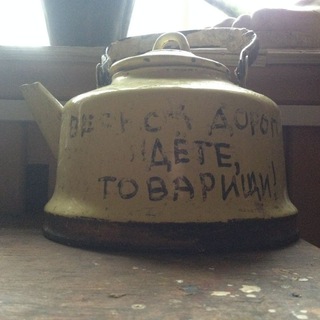 ВЕРНОЙ ДОРОГ
ИДЁТЕ,
ТОВАРИЩИ!